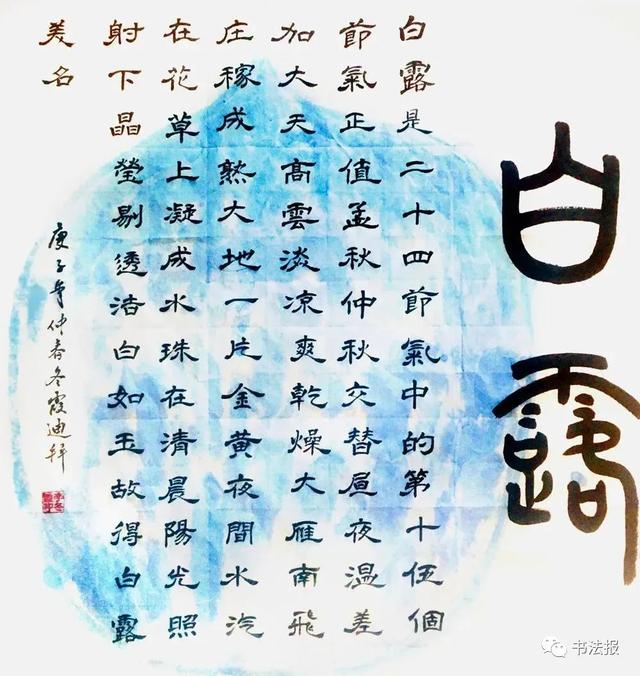 白露
白露是二十四節氣中的第十伍個
節氣正值孟秋仲秋交替昼夜温差
加大天高雲淡凉爽乾燥大雁南飛
庄稼成熟大地一片金黄夜間水汽
在花草上凝成水珠在清晨陽光照
射下晶瑩剔透洁白如玉故得白露
美名
庚子年仲春冬霞迪
书法报